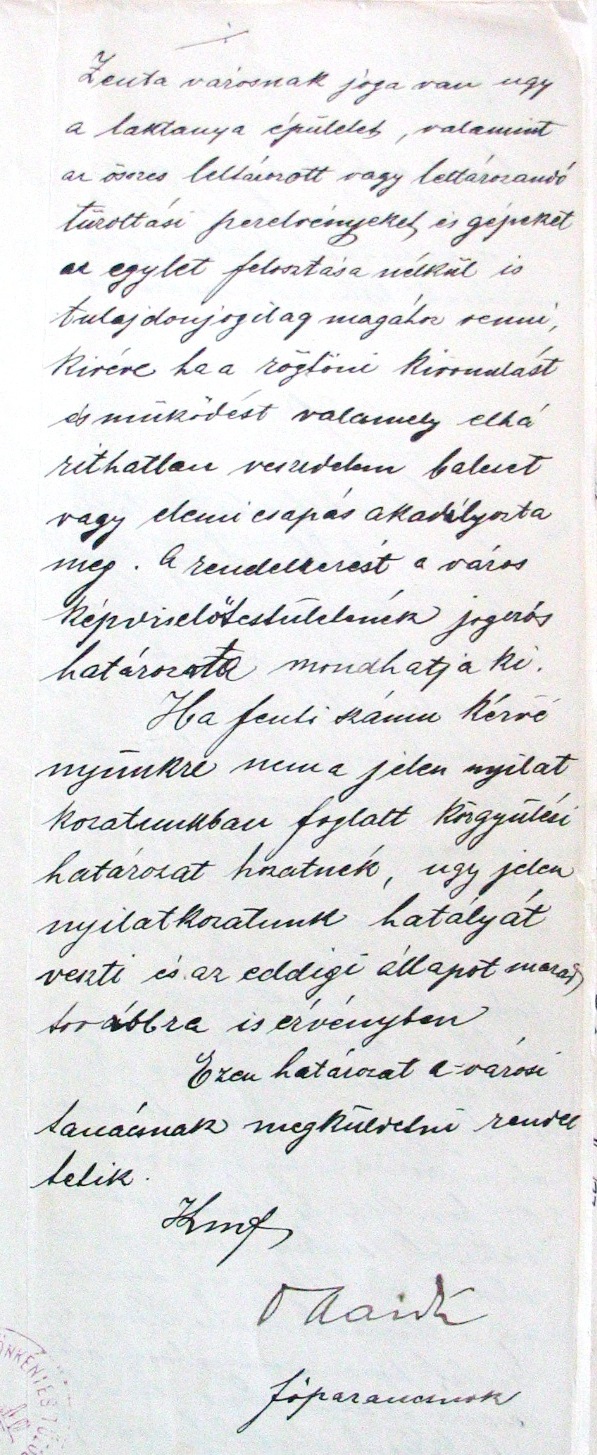 Zenta városnak joga van ugy
a laktanya épületet, valamint
az összes leltározott vagy leltározandó
tűzoltási szerelvényeket, és gépeket
az egylet feloszlása nélkül is
tulajdonjogilag magához venni,
kivéve ha a rögtöni kivonulást
és működést valamely elhá
rithatlan veszedelem baleset
vagy elemi csapás akadályozta
meg. A rendelkezést a város
képviselőtestületének jogerős
határozata mondhatja ki.
Ha fenti számu kérvé
nyünkre nem a jelen nyilat
kozatunkban foglalt közgyülési
határozat hozatnék, ugy jelen
nyilatkozatunk hatályát
veszti és az eddigi állapot marad
továbbra is érvényben
Ezen határozat a városi
tanácsnak megküldetni rendel
tetik.
Kmf
főparancsnok
ÖNKÉNTES